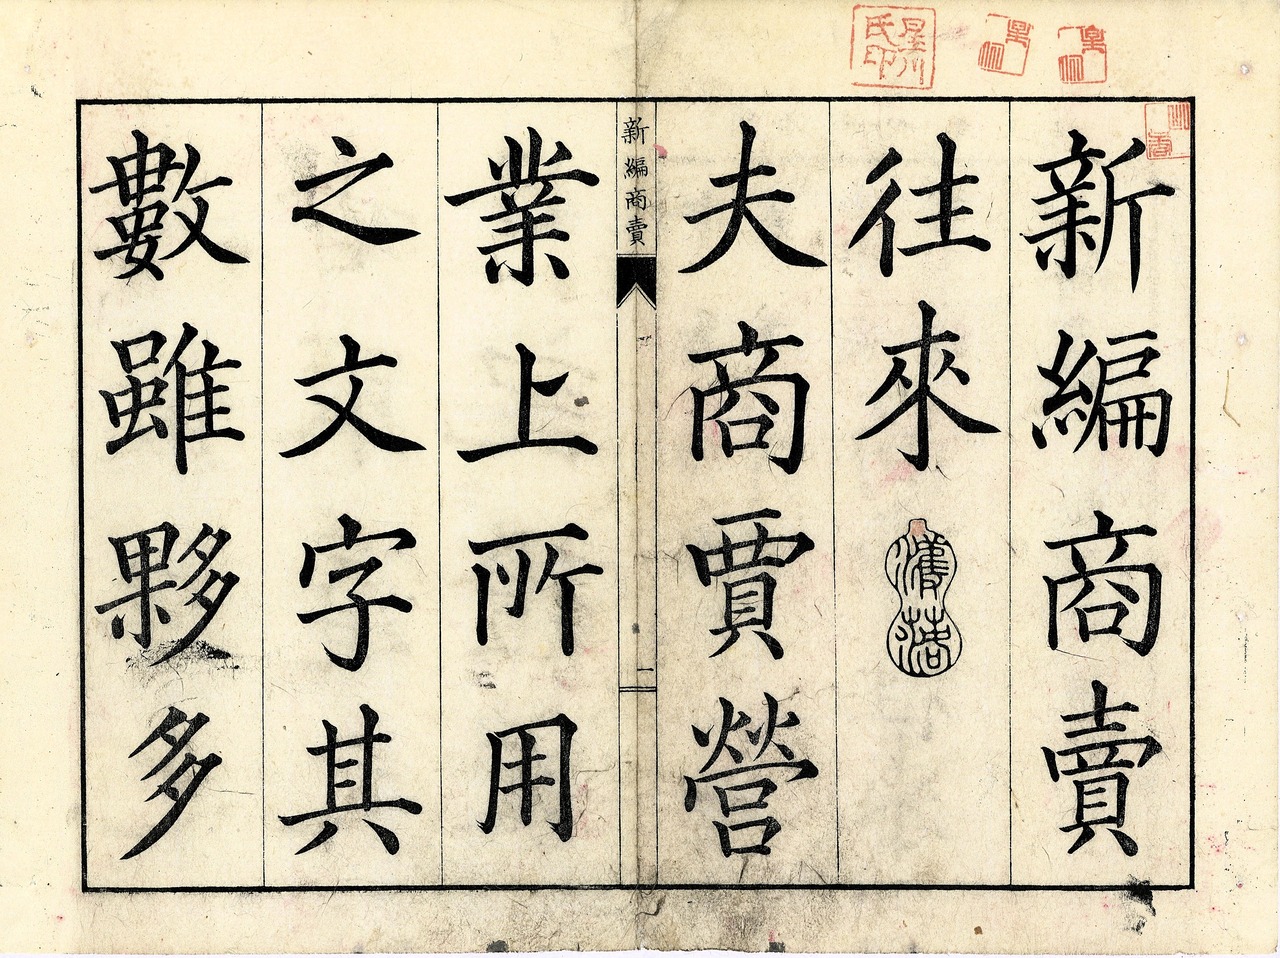 新編商賣
往來
夫商賈營
新編商賣
一
業上所用
之文字其
數雖夥多